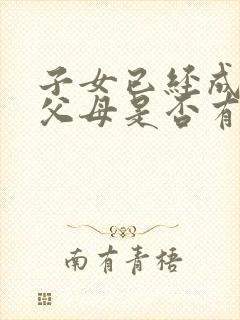 子女已经成
父母是否有
南有青梧